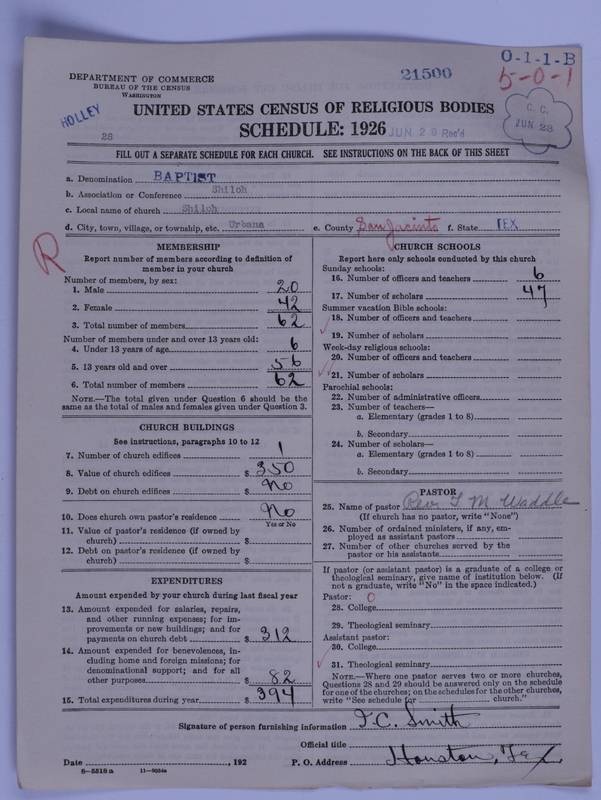 O-1-1-B
21500
5-0-1
DEPARTMENT OF COMMERCE
BUREAU OF THE CENSUS
WASHINGTON
HOLLEY
C. C.
JUN 28
UNITED STATES CENSUS OF RELIGIOUS BODIES
26
SCHEDULE: 1926
JUN 28 Rec'd
FILL OUT A SEPARATE SCHEDULE FOR EACH CHURCH. SEE INSTRUCTIONS ON THE BACK OF THIS SHEET
a. Denomination BAPTIST
b. Association or Conference Shiloh
c. Local name of church Shiloh
d. City, town, village, or township, etc. Urbana e. County San Jacinto f. State TEX
R
MEMBERSHIP
Report number of members according to definition of
member in your church
Number of members, by sex:
1. Male 20
2. Female 42
3. Total number of members 62
Number of members under and over 13 years old:
4. Under 13 years of age 6
5. 13 years old and over 56
6. Total number of members 62
NOTE.—The total given under Question 6 should be the
same as the total of males and females given under Question 3.
CHURCH BUILDINGS
See instructions, paragraphs 10 to 12
7. Number of church edifices 1
8. Value of church edifices $ 350
9. Debt on church edifices $ No
10. Does church own pastor's residence No
Yes or No
11. Value of pastor's residence (if owned by
church) $
12. Debt on pastor's residence (if owned by
church) $
EXPENDITURES
Amount expended by your church during last fiscal year
13. Amount expended for salaries, repairs,
and other running expenses; for im-
provements or new buildings; and for
payments on church debt $ 312
14. Amount expended for benevolences, in-
cluding home and foreign missions; for
denominational support; and for all
other purposes $ 82
15. Total expenditures during year $ 394
CHURCH SCHOOLS
Report here only schools conducted by this church
Sunday schools:
16. Number of officers and teachers 6
17. Number of scholars 47
Summer vacation Bible schools:
18. Number of officers and teachers
19. Number of scholars
Week-day religious schools:
20. Number of officers and teachers
21. Number of scholars
Parochial schools:
22. Number of administrative officers
23. Number of teachers—
a. Elementary (grades 1 to 8)
b. Secondary
24. Number of scholars—
a. Elementary (grades 1 to 8)
b. Secondary
PASTOR
25. Name of pastor Rev T M Waddle
(If church has no pastor, write "None")
26. Number of ordained ministers, if any, em-
ployed as assistant pastors
27. Number of other churches served by the
pastor or his assistants
If pastor (or assistant pastor) is a graduate of a college or
theological seminary, give name of institution below. (If
not a graduate, write "No" in the space indicated.)
Pastor: 0
28. College
29. Theological seminary
Assistant pastor:
30. College
31. Theological seminary
NOTE.—Where one pastor serves two or more churches,
Questions 28 and 29 should be answered only on the schedule
for one of the churches; on the schedules for the other churches,
write "See schedule for church."
Signature of person furnishing information T. C. Smith
Official title
Date , 192 P. O. Address Houston, Tex
8-5518a 11-9054a